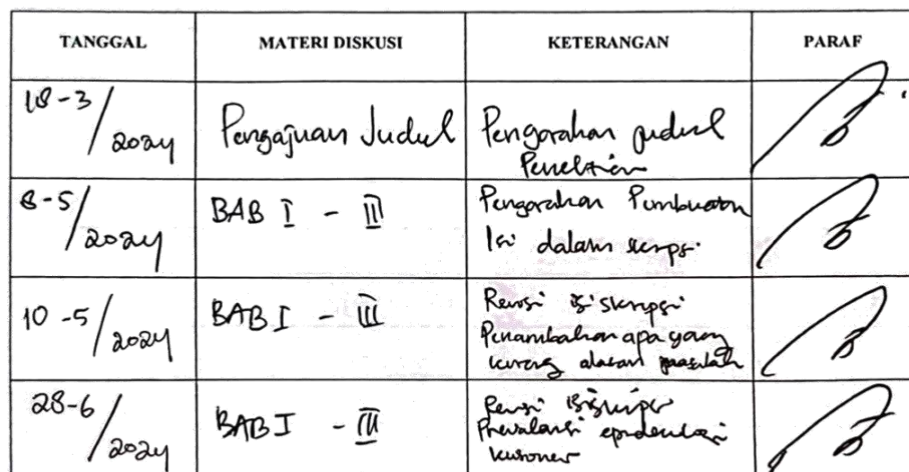 TANGGAL MATERI DISKUSI KETERANGAN PARAF
18-3/2024 Pengajuan Judul Pengarahan judul
Penelitian
8-5/2024 BAB I - III Pengarahan Pembuatan
Isi dalam skripsi.
10-5/2024 BAB I - III Revisi isi skripsi
Penambahan apa yang
kurang alasan masalah
28-6/2024 BAB I - III Revisi isi skripsi
Prevalensi
kuisoner